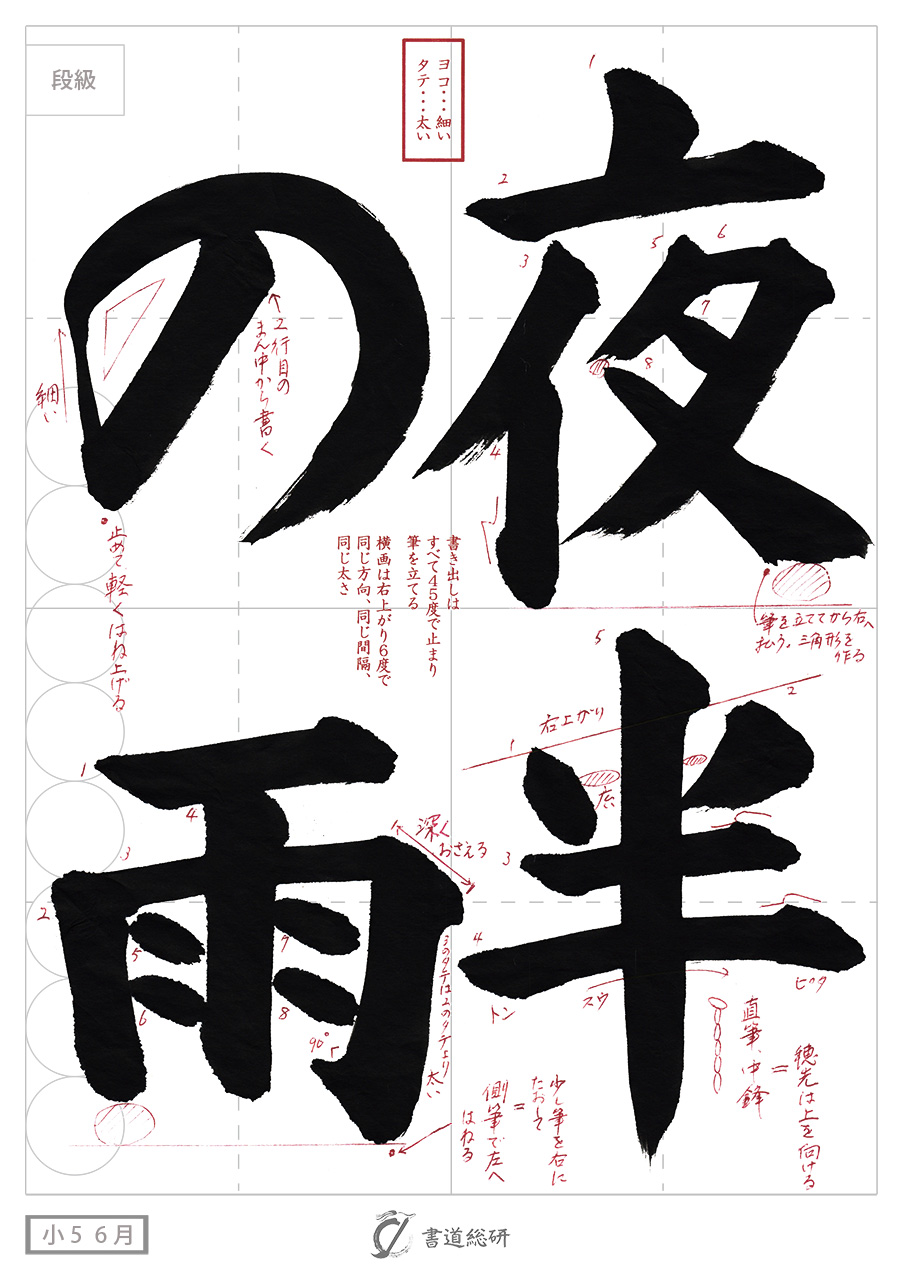 夜半
の雨
段級
ヨコ・・・細い
タテ・・・太い
1
2
3
4
5
6
7
8
筆を立ててから右へ
払う。三角形を
作る
2行目の
まん中から書く
細い
止めて軽くはね上げる
書き出しは
すべて45度で止まり
筆を立てる
横画は右上がり6度で
同じ方向、同じ間隔、
同じ太さ
右上がり
1
2
3
4
5
広い
トン
スウ
ピタ
直筆、中鋒
=
穂先は上を向ける
1
2
3
4
5
6
7
8
深く
おさえる
3のタテは2のタテより
太い
90°
少し筆を右に
たおして
=
側筆で左へ
はねる
小5 6月
書道総研